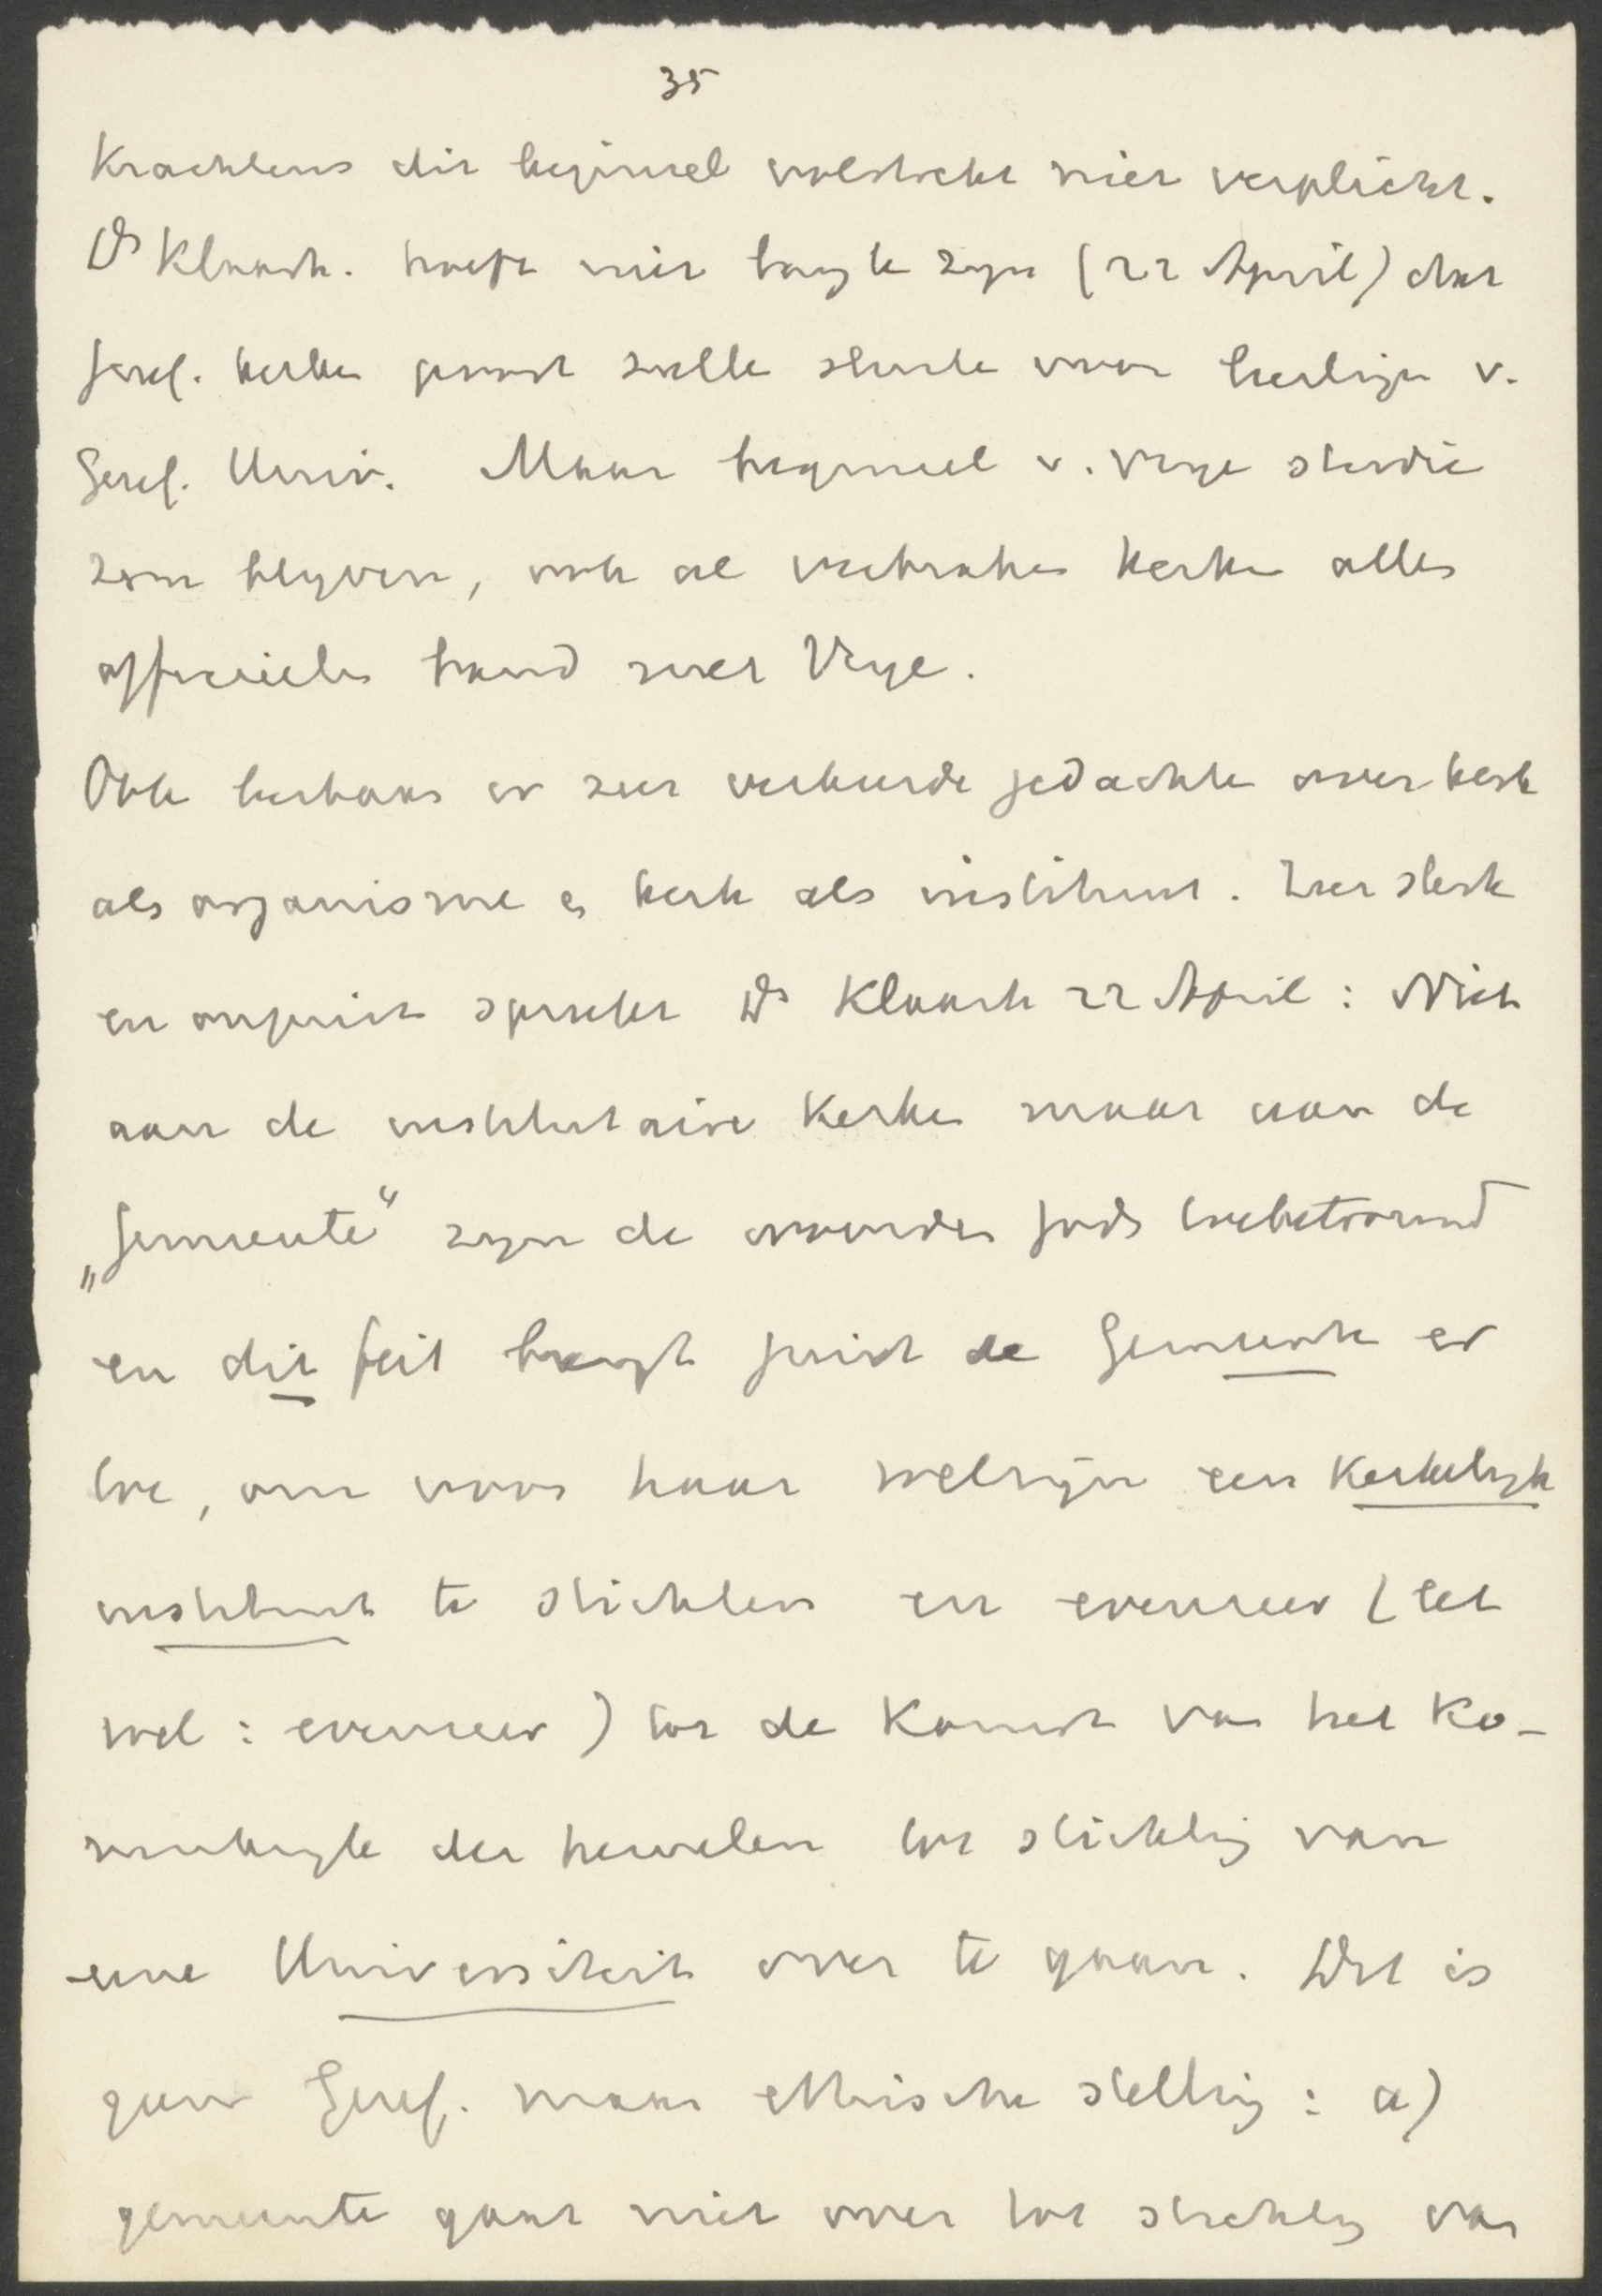 35
Krachtens dit beginsel volstrekt niet verplicht.
Ds Klaarh. hoeft niet bang te zijn (22 April) dat
Geref. kerken gaaoot zulle
Geref. Univ. Maar beginsel v. vrije studie
zou blijven, ook al verbraken kerken alle
officieele band met Vrije.
Ook heerschen er zeer verkeerde gedachte over kerk
als organisme en kerk als instituut. Zeer sterk
en onjuist spreekt Ds Klaarh 22 April: Niet
aan de institutaire Kerken maar aan de
„Gemeente“ zijn de woorden Gods toebetrouwd
en dit feit brengt juist de Gemeente er
toe, om voor haar welzijn een Kerkelijk
instituut te stichten en evenzeer (let
wel: evenzeer) tot de Komst van het Ko-
ninkrijk der hemelen tot stichting van
eene Universiteit over te gaan. Dit is
geen Geref. maar ethische stelling: a)
gemeente gaat niet over tot stichting van